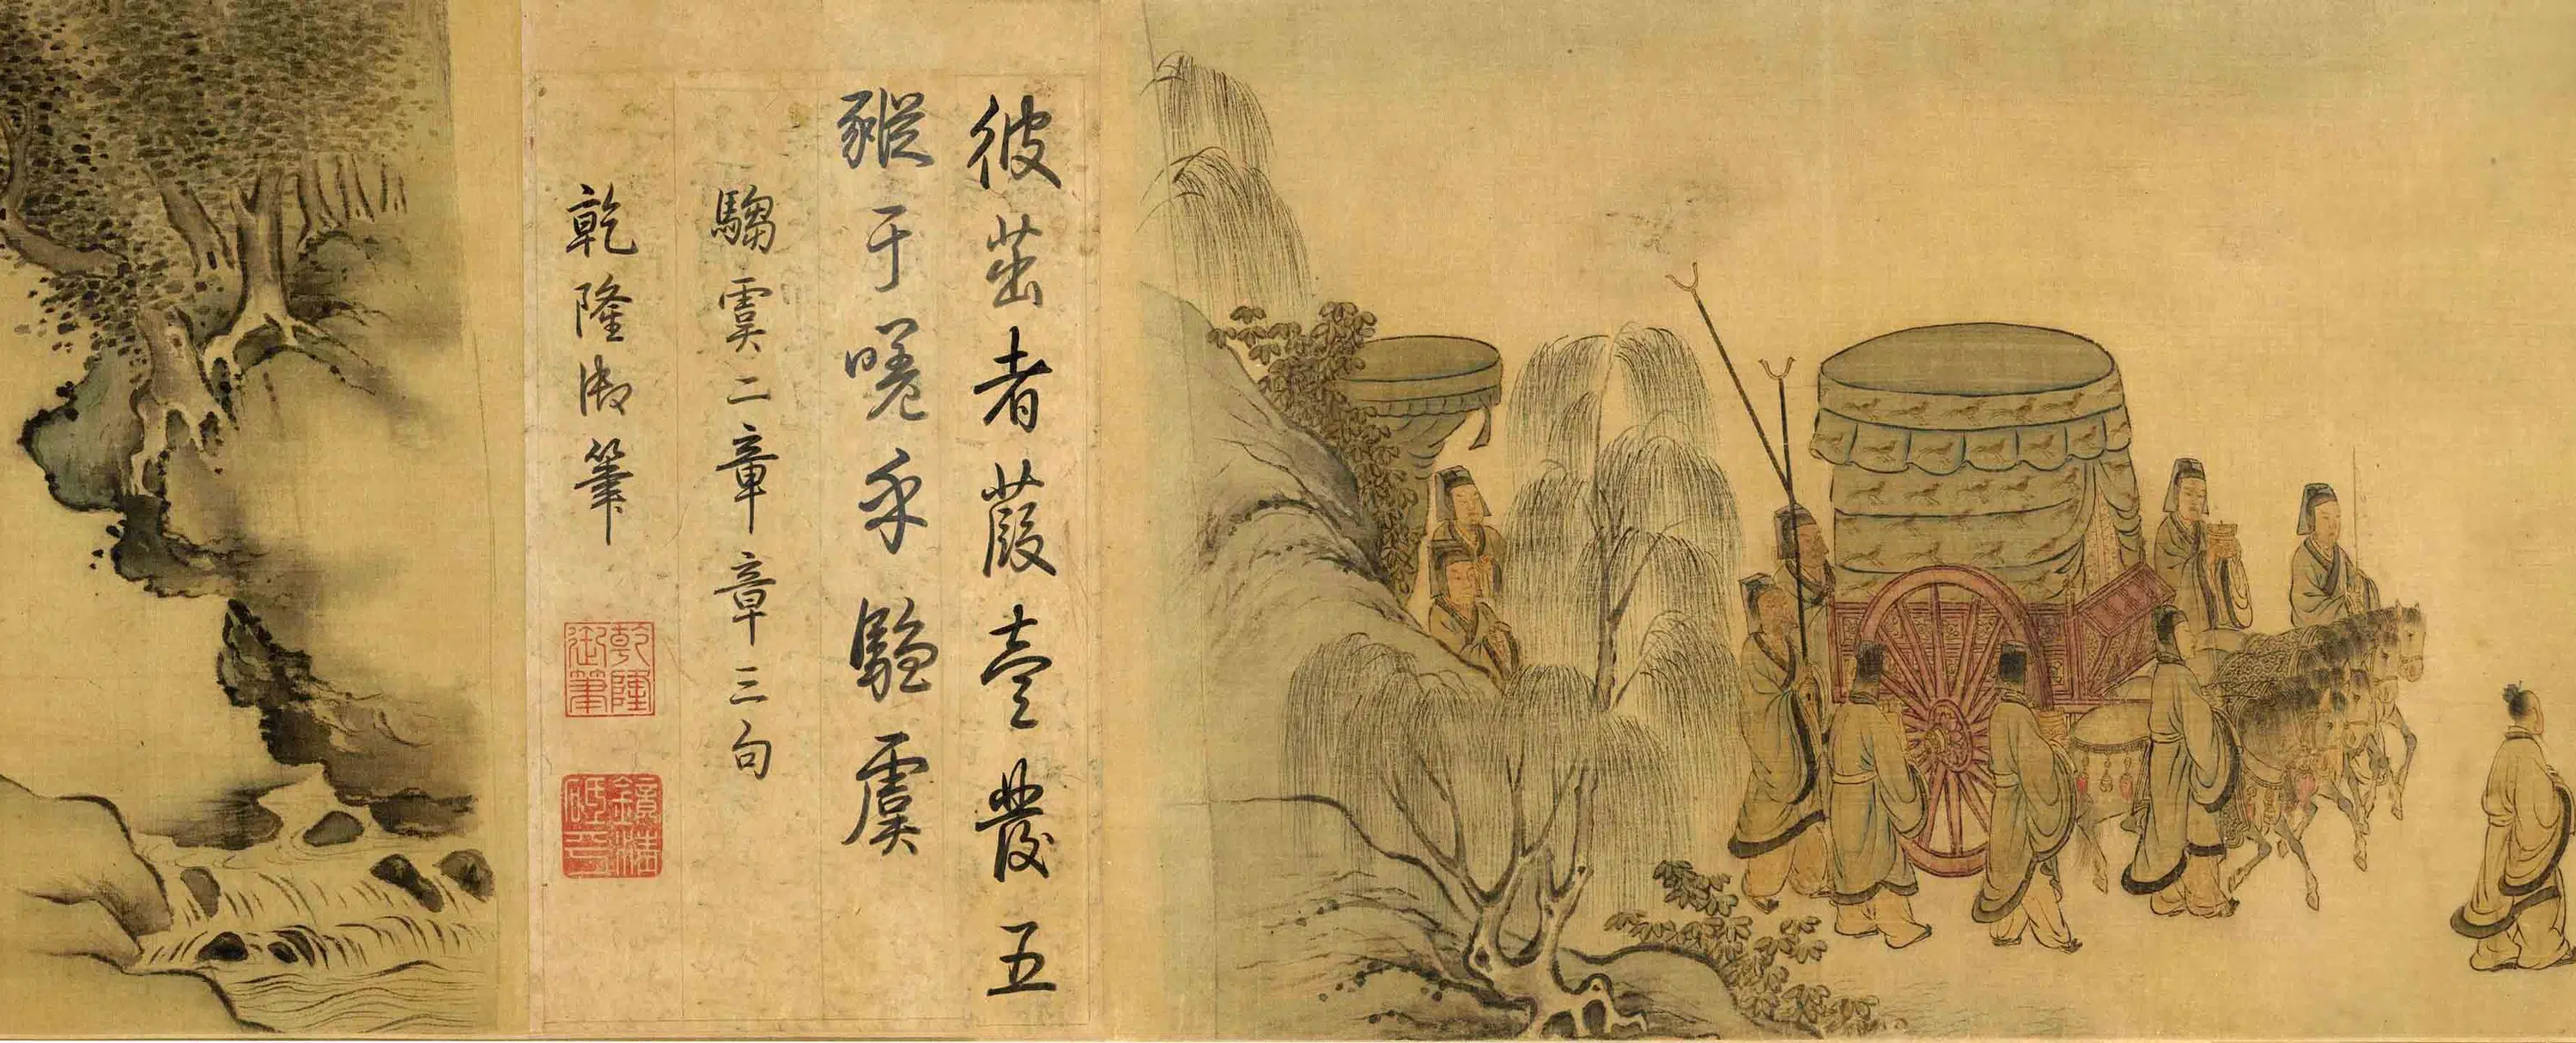 彼茁者葭壹發五
豵于嗟乎騶虞
騶虞二章章三句
乾隆御筆
乾隆御筆
鏡清砥平